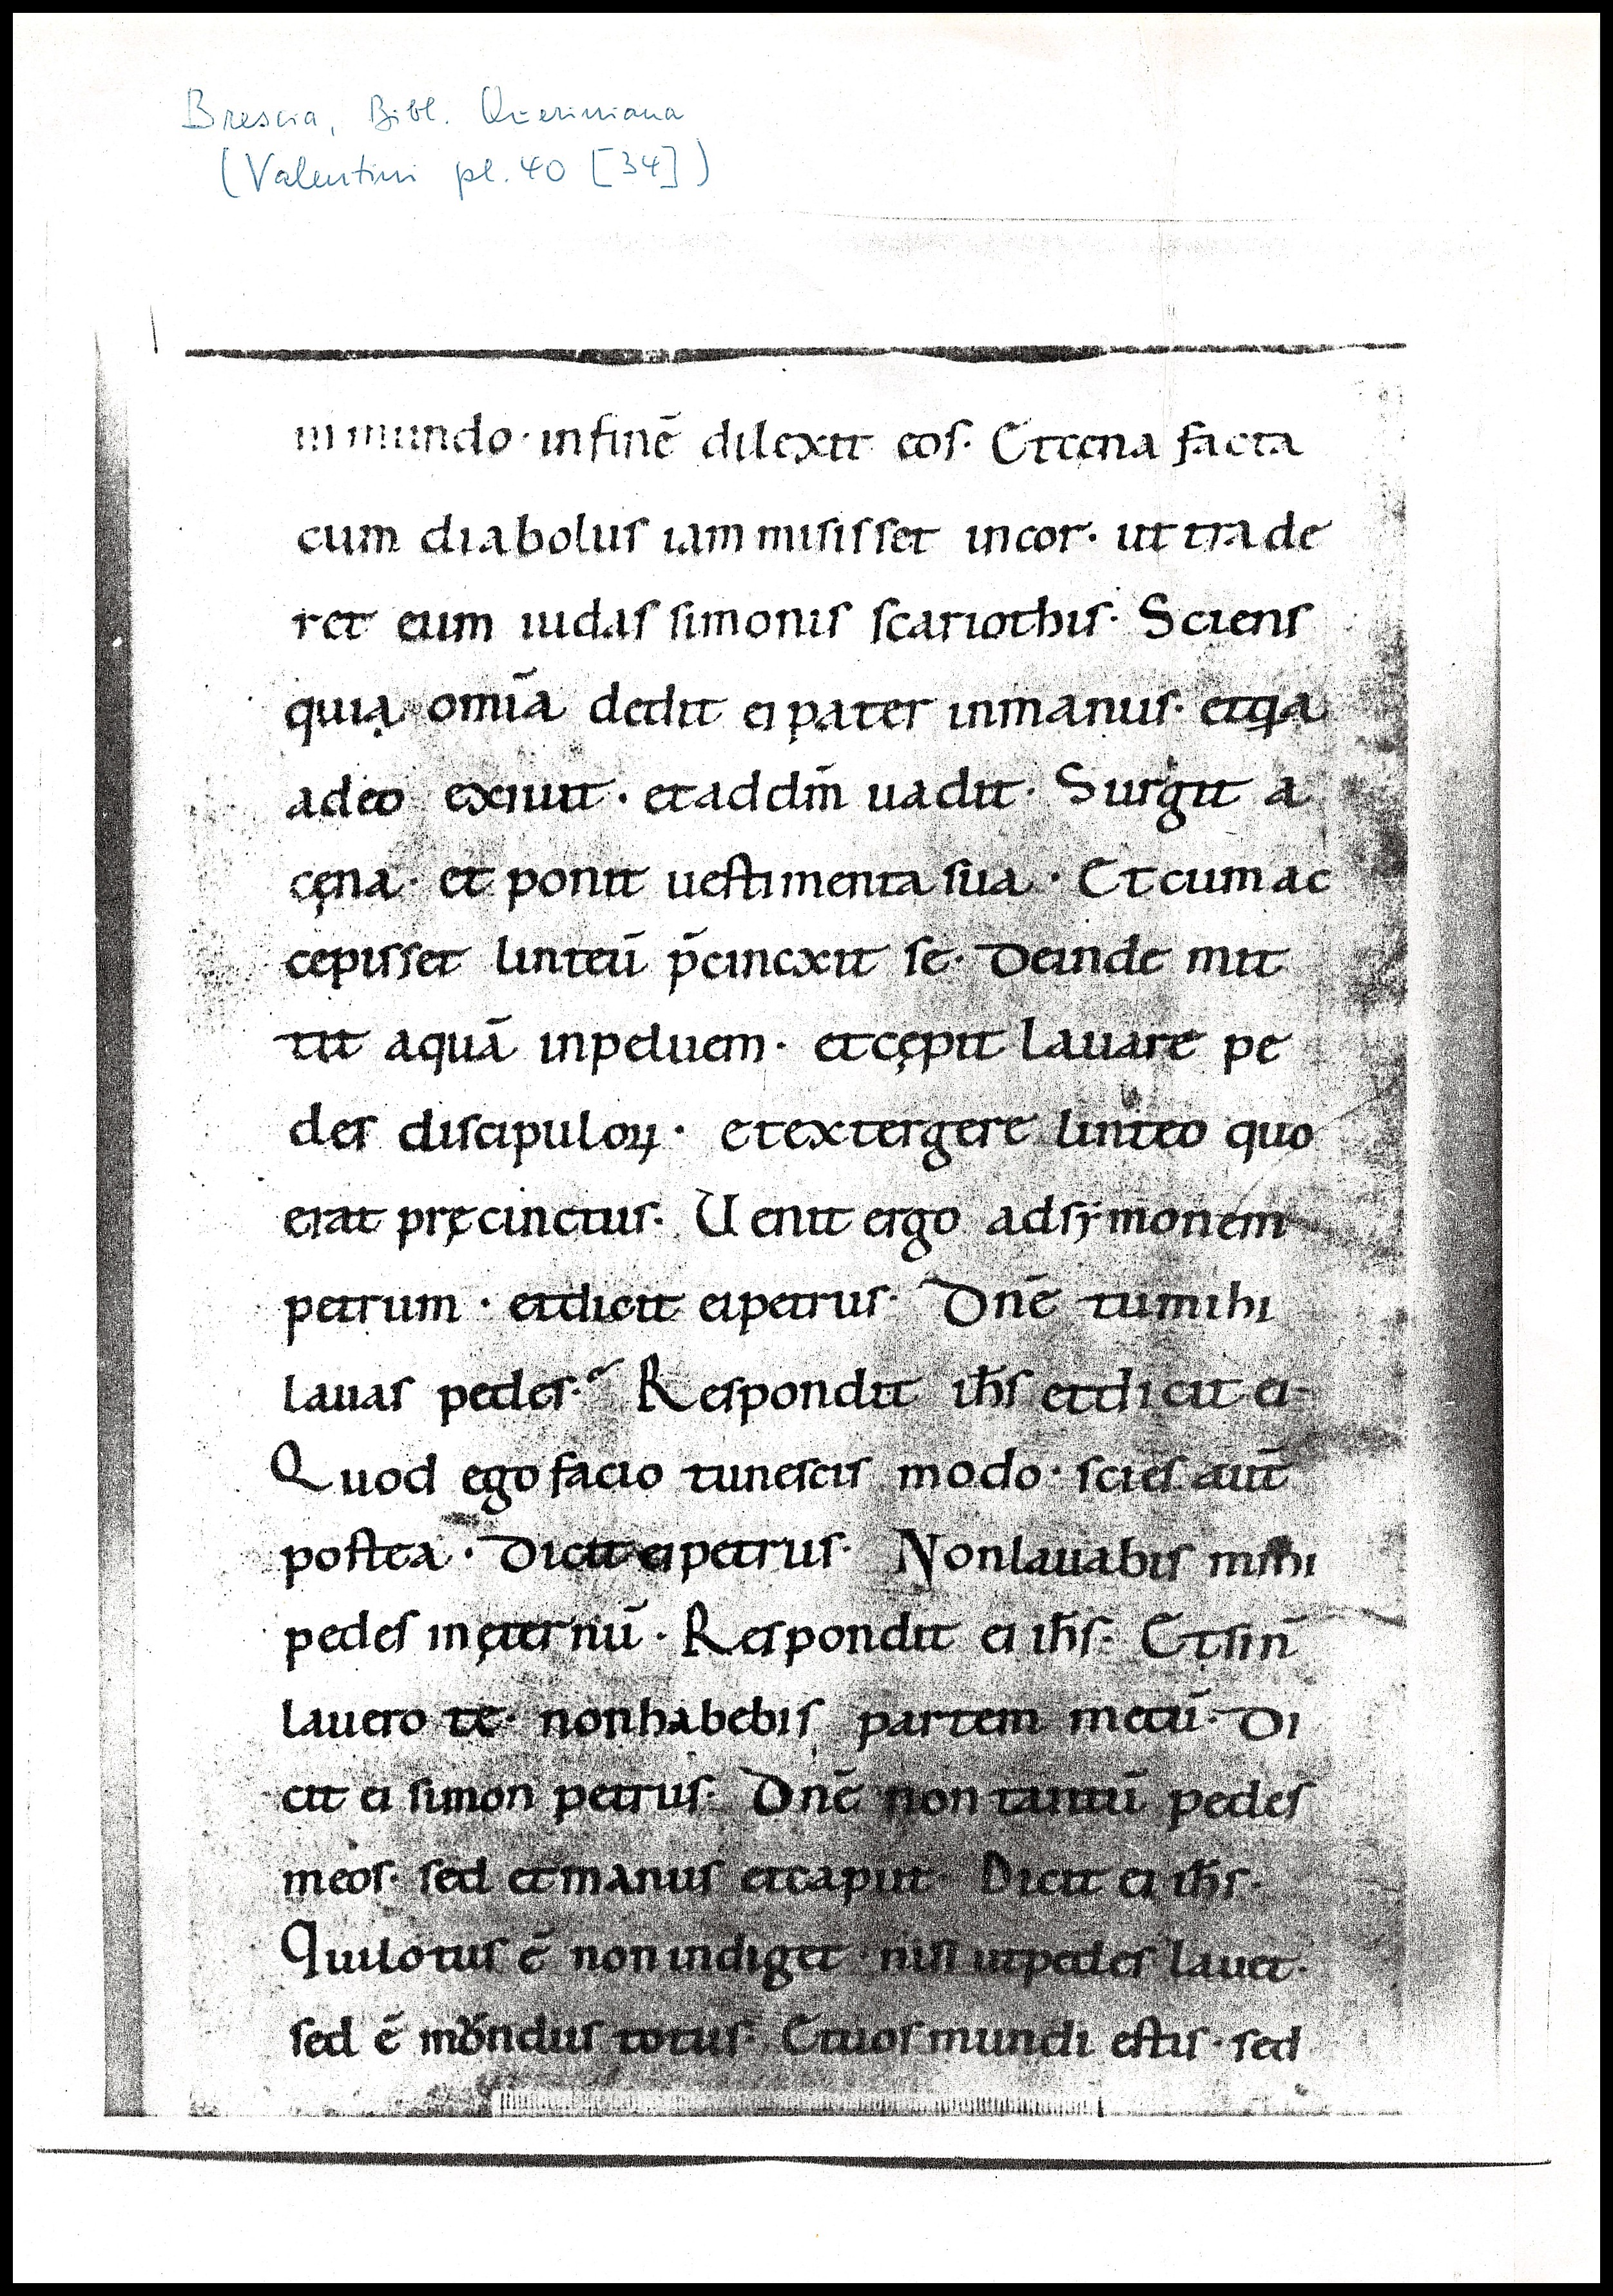 Brescia, Bibl. Queriniana
(Valentini pl. 40 [34])
in mundo· in finē dilexit eos· Et cena facta
cum diabolus iam misisset in cor· ut trade
ret eum iudas simonis scariothis· Sciens
quia omīa dedit ei pater in manus· et qa
a deo exiuit· et ad dm̄ uadit· Surgit a
cęna· et ponit uestimenta sua· Et cum ac
cepisset linteū p̄cincxit se· Deinde mit
tit aquā in peluem· et cępit lauare pe
des discipuloꝝ· et extergere linteo quo
erat pręcinctus· Uenit ergo ad sẏmonem
petrum· et dicit ei petrus· Dnē tu mihi
lauas pedes· Respondit ih̄s et dicit ei·
Quod ego facio tu nescis modo· scies aut̄
postea· Dicit ei petrus· Non lauabis mihi
pedes in ęternū· Respondit ei ih̄s· Et si n̄
lauero te· non habebis partem mecū· Di
cit ei simon petrus· Dnē non tantū pedes
meos· sed et manus et caput· Dicit ei ih̄s·
Qui lotus ē non indiget· nisi ut pedes lauet·
sed ē mundus totus· Et uos mundi estis· sed